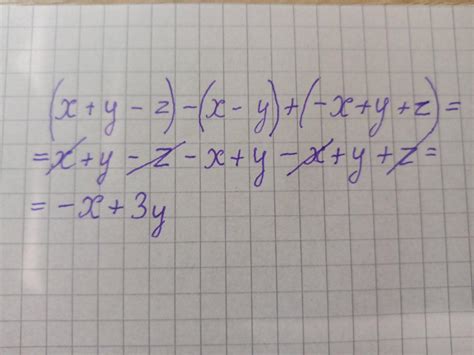 (x + y - z) - (x - y) + (-x + y + z) =
= x + y - z - x + y - x + y + z =
= -x + 3y